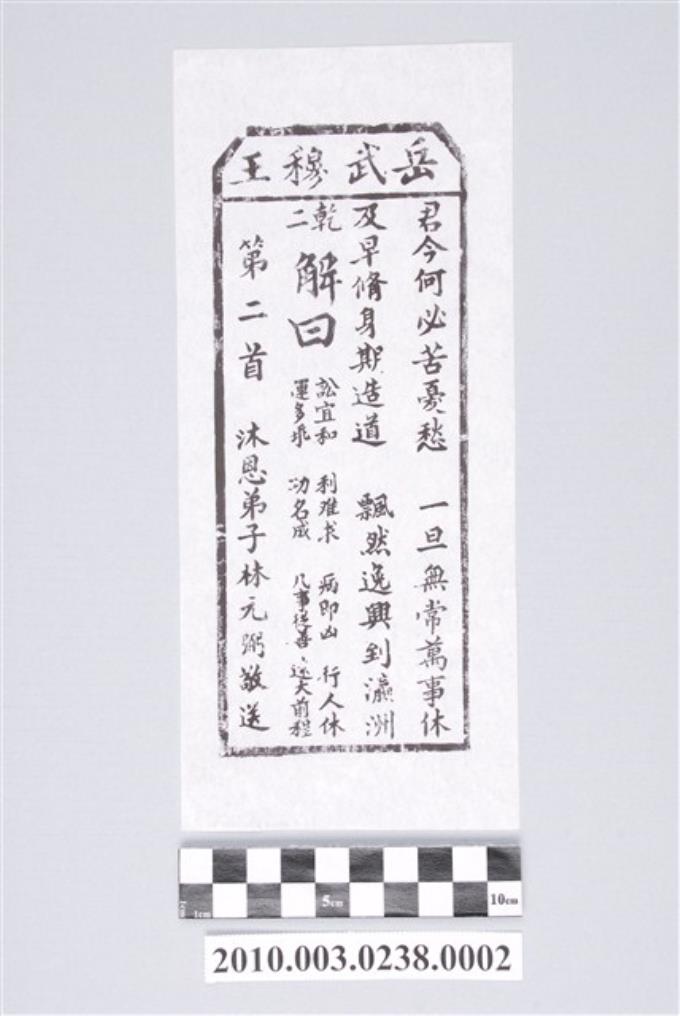 岳武穆王
君今何必苦憂愁　一旦無常萬事休
及早脩身期造道　飄然逸興到瀛洲
乾二
解曰
訟宜和　利難求　病即凶　行人休
運多乖　功名成　凡事從善　遠大前程
第二首　沐恩弟子林元弼敬送
1cm 5cm 10cm
2010.003.0238.0002